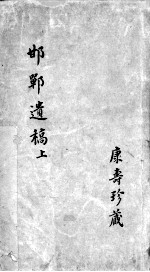 邯鄲遺稿上
康壽珍藏